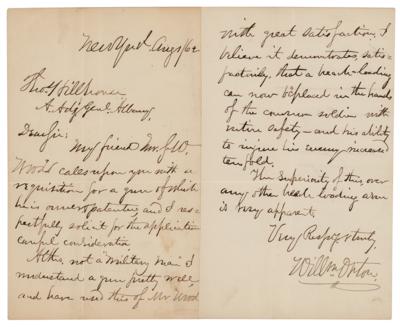 New York Aug 1/62
Thos. Hillhouse
A. Adjt Genl. Albany
Dear Sir:
My friend Mr. J. W.
Wood calls upon you with a
requisition for a gun of which
he is owner & patentee, and I res-
pectfully solicit for the application
careful consideration.
Altho. not a "military man" I
understand a gun pretty well,
and have used this of Mr Wood
with great satisfaction. I
believe it demonstrates, satis-
factorily, that a breech-loading
can now be placed in the hands
of the common soldier with
entire safety – and his ability
to injure his enemy increased
ten fold.
The superiority of this, over
any other breech loading arm
is very apparent.
Very Respectfully,
Willm Orton